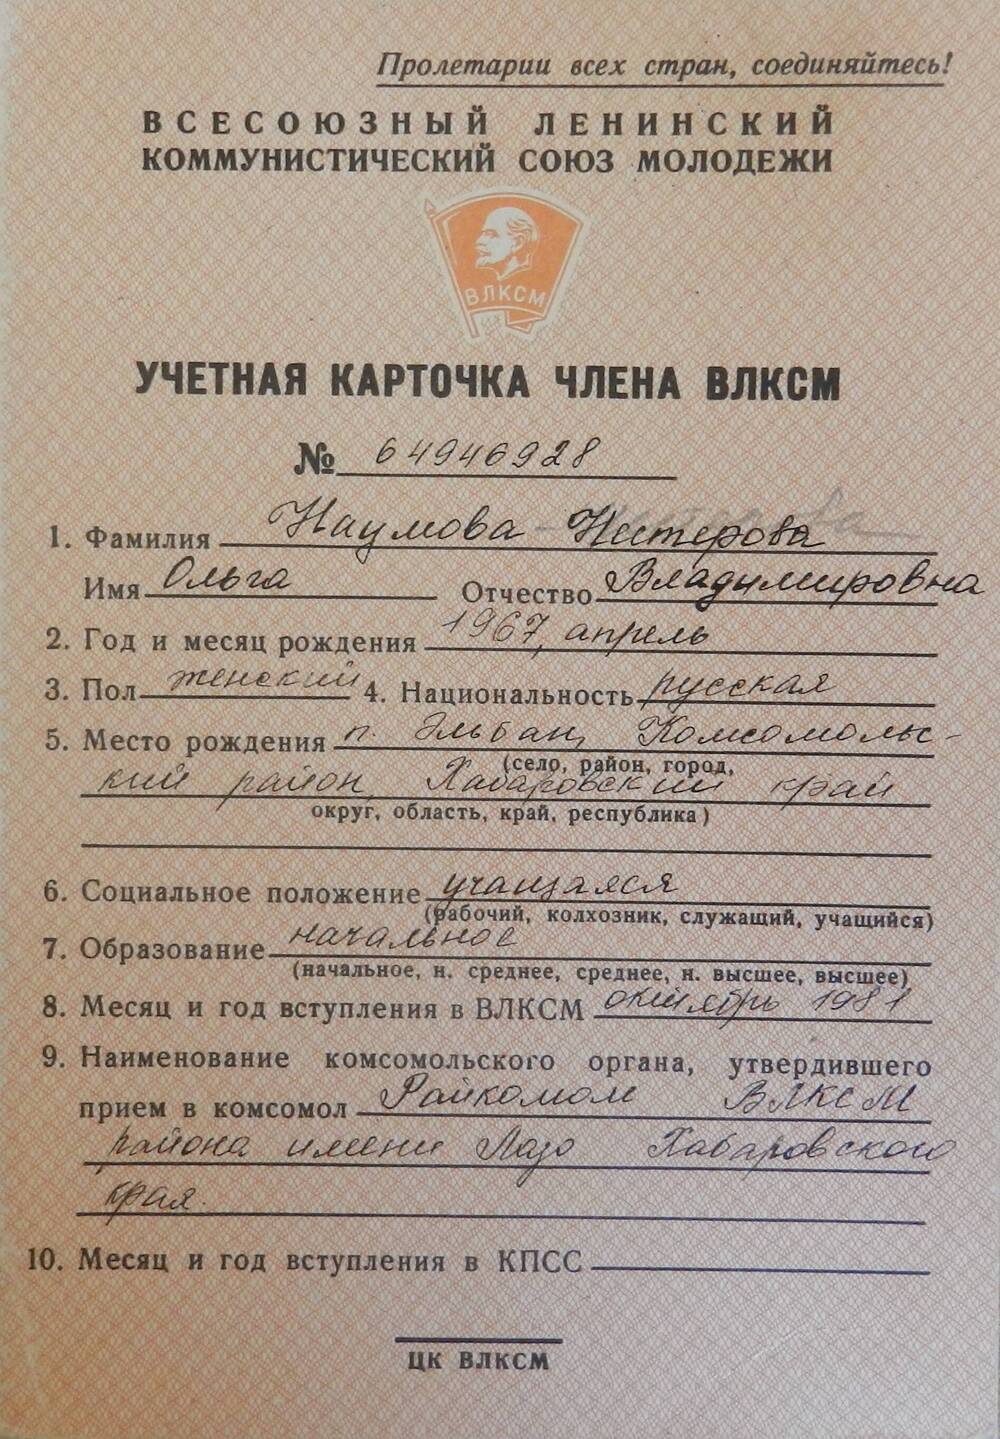 Пролетарии всех стран, соединяйтесь!
ВСЕСОЮЗНЫЙ ЛЕНИНСКИЙ
КОММУНИСТИЧЕСКИЙ СОЮЗ МОЛОДЕЖИ
ВЛКСМ
УЧЕТНАЯ КАРТОЧКА ЧЛЕНА ВЛКСМ
№ 64946928
1. Фамилия Наумова - Нестерова
Имя Ольга Отчество Владимировна
2. Год и месяц рождения 1967, апрель
3. Пол женский 4. Национальность русская
5. Место рождения п. Эльбан, Комсомольс-
(село, район, город,
кий район, Хабаровский край
округ, область, край, республика)
6. Социальное положение учащаяся
(рабочий, колхозник, служащий, учащийся)
7. Образование начальное
(начальное, н. среднее, среднее, н. высшее, высшее)
8. Месяц и год вступления в ВЛКСМ октябрь 1981
9. Наименование комсомольского органа, утвердившего
прием в комсомол Райкомом ВЛКСМ
района имени Лазо Хабаровского
края.
10. Месяц и год вступления в КПСС
ЦК ВЛКСМ